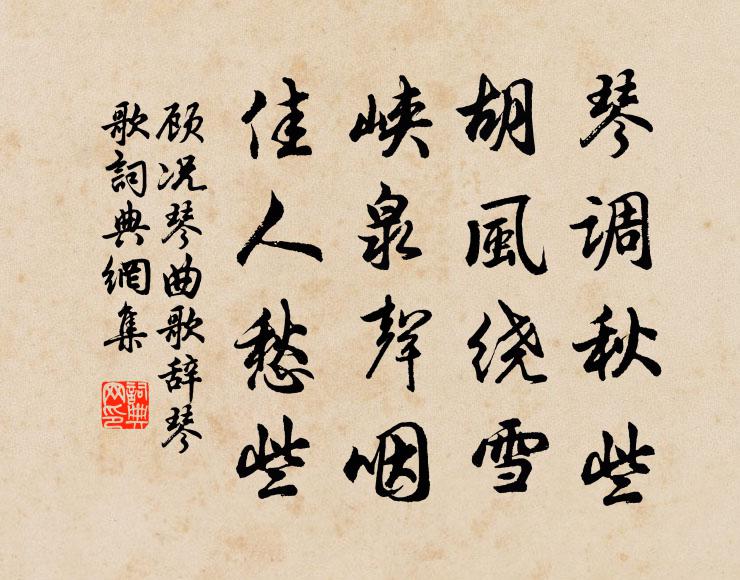 琴调秋些
胡風绕雪
峡泉聲咽
佳人愁些
顾况琴曲歌辞琴
歌詞典網集
詞典
网印